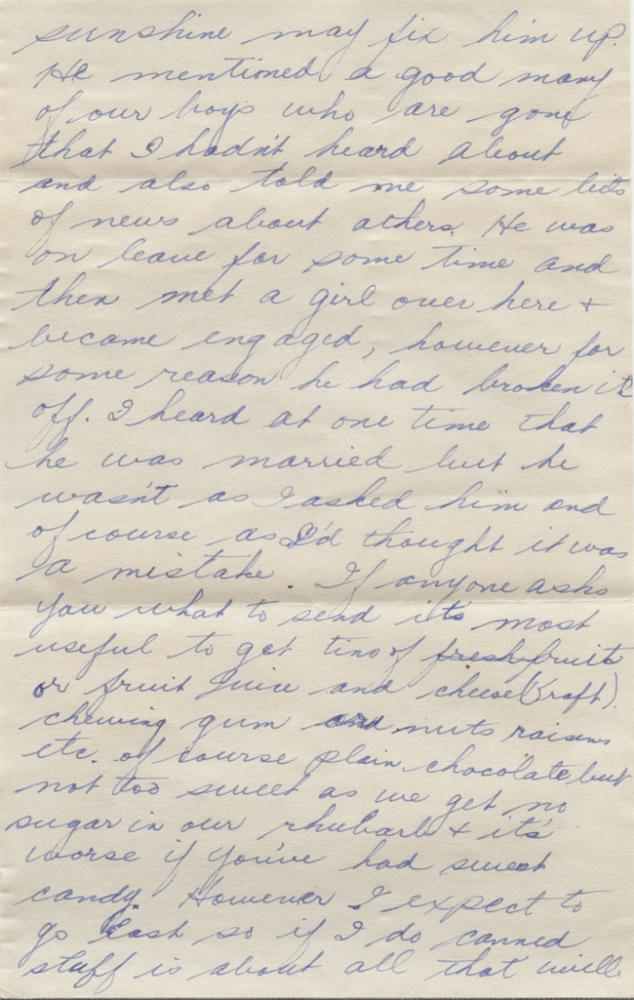 sunshine may fix him up.
He mentioned a good many
of our boys who are gone
that I hadn't heard about
and also told me some bits
of news about others. He was
on leave for some time and
then met a girl over here +
became engaged, however for
some reason he had broken it
off. I heard at one time that
he was married but he
wasn't as I asked him and
of course as I'd thought it was
a mistake. If anyone asks
you what to send its most
useful to get tins of fresh fruit
or fruit juice and cheese (Kraft)
chewing gum and nuts raisins
etc. of course plain chocolate but
not too sweet as we get no
sugar in our rhubarb + it's
worse if you've had sweet
candy. However I expect to
go East so if I do canned
stuff is about all that will